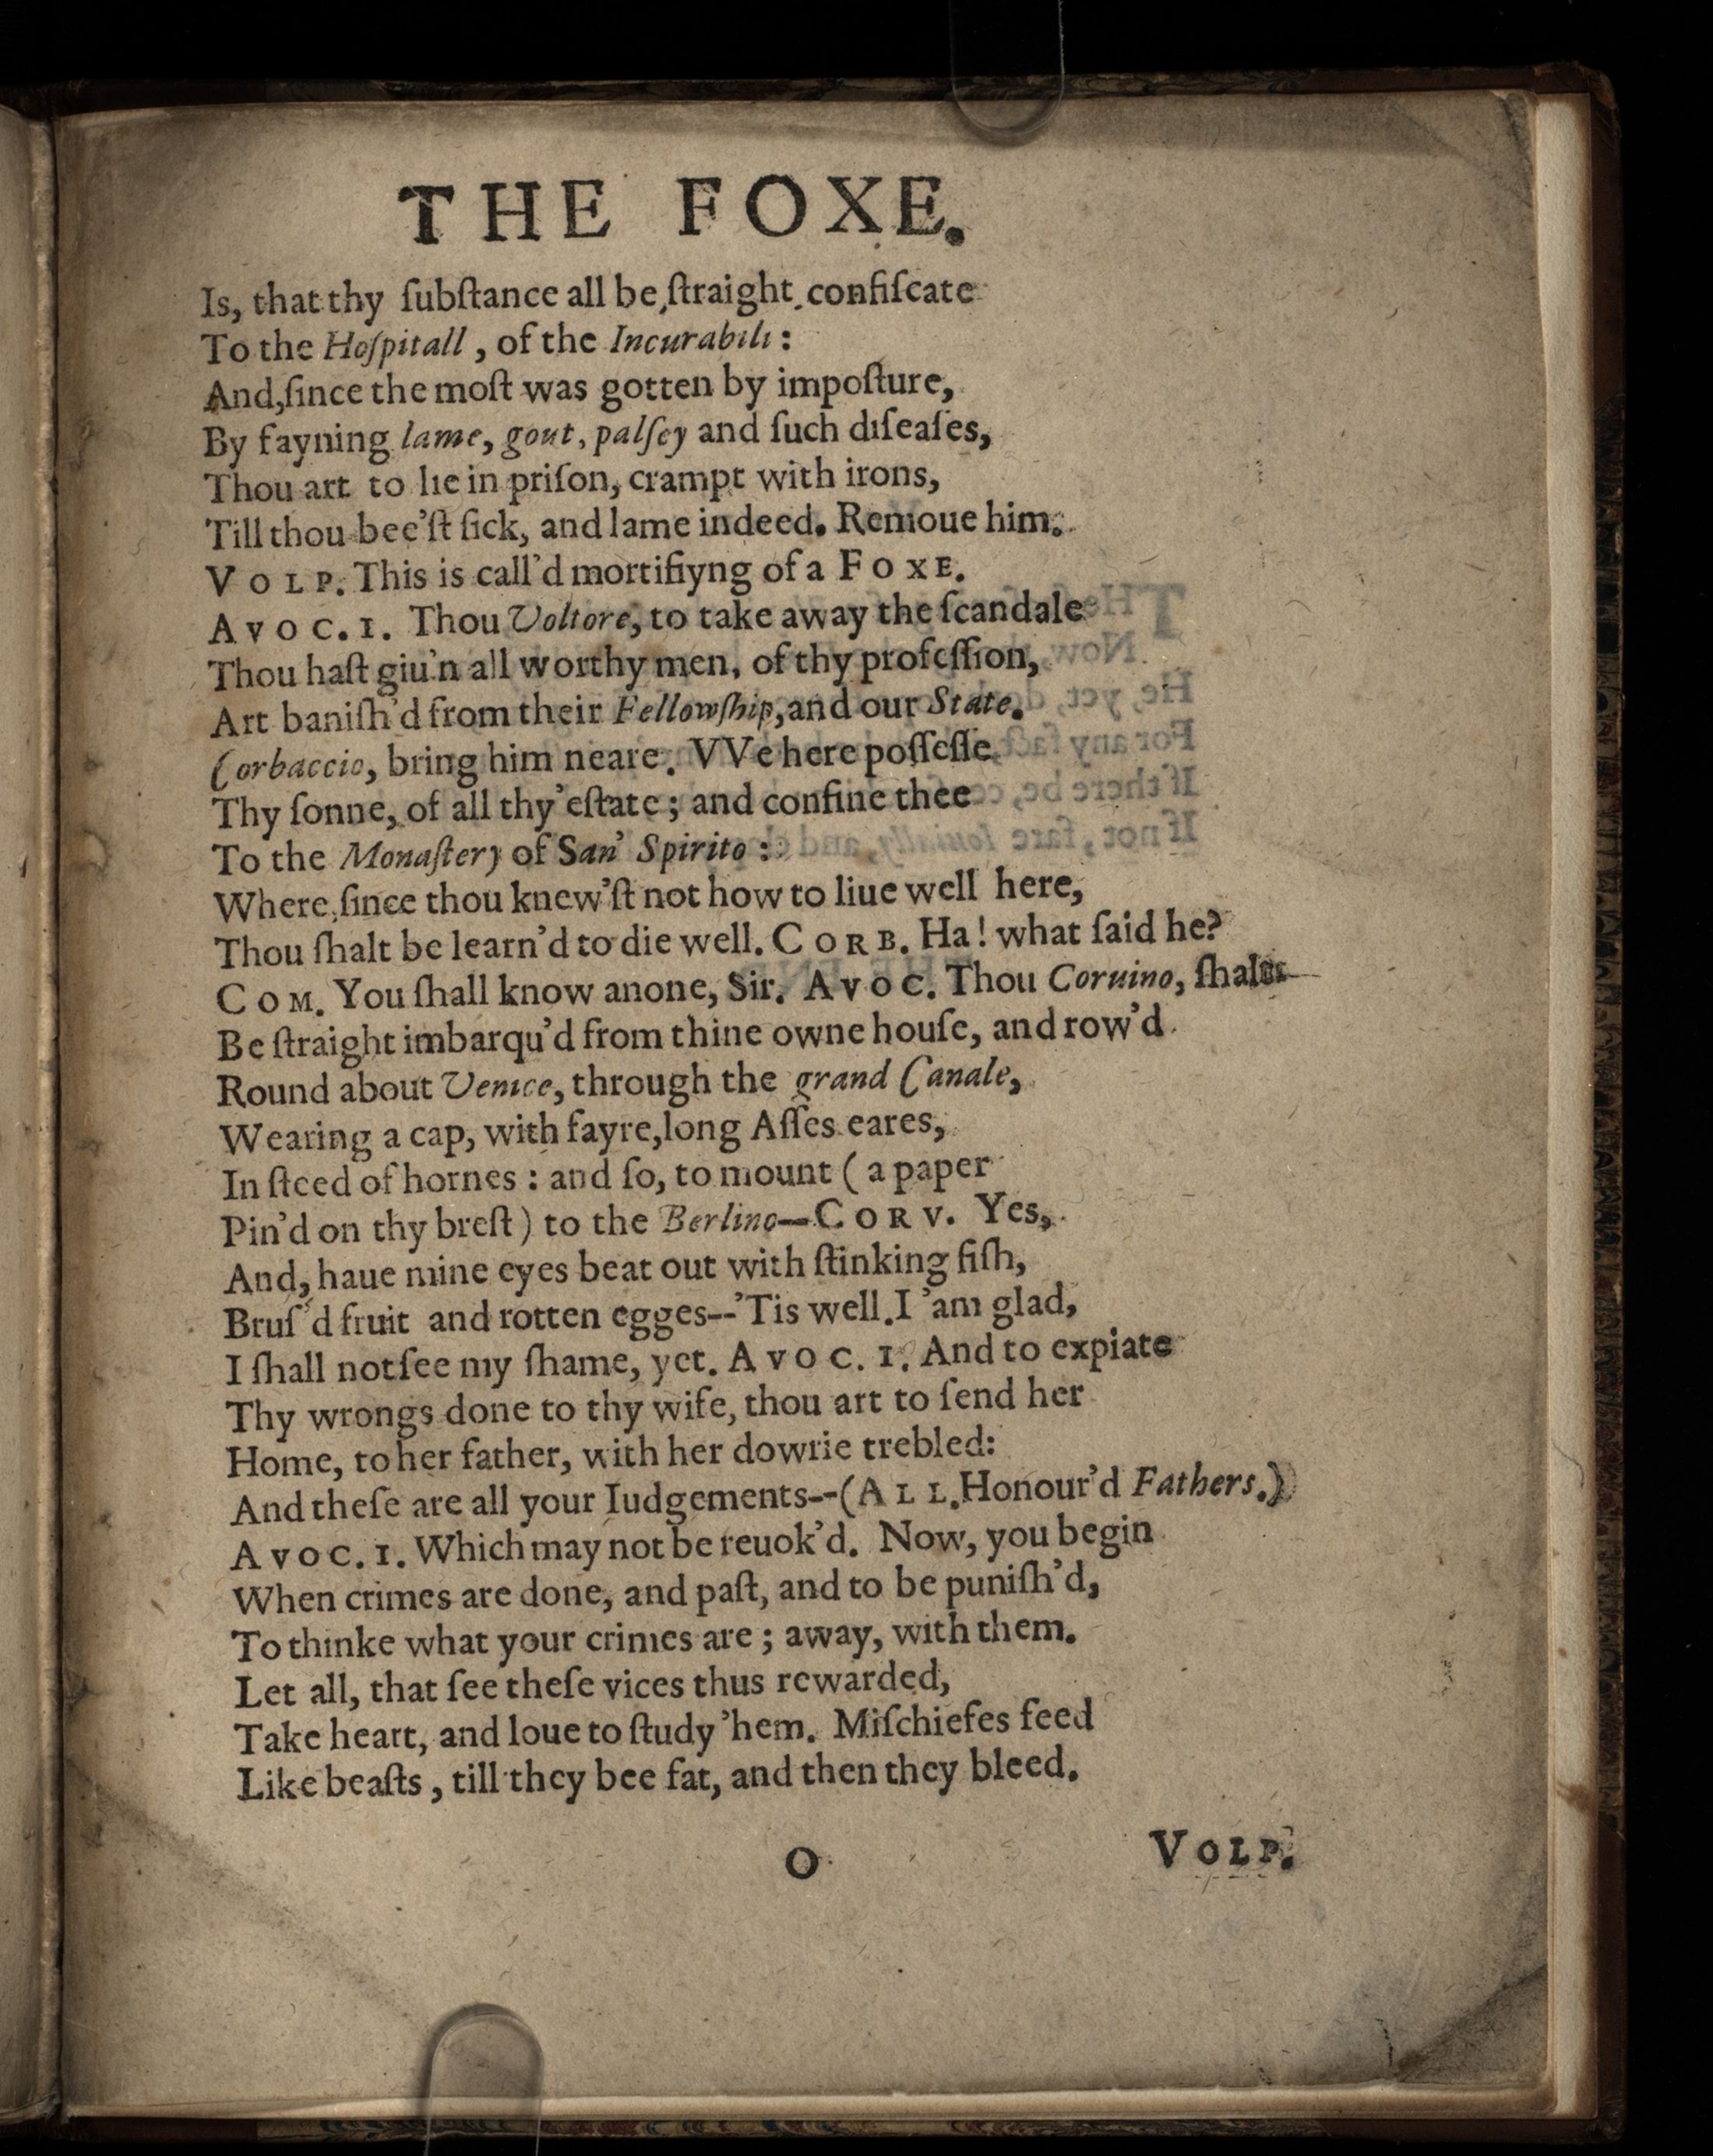 THE FOXE.
Is, that thy ſubſtance all be ſtraight confiſcate
To the Hoſpitall, of the Incurabili:
And, ſince the moſt was gotten by impoſture,
By fayning lame, gout, palſey and ſuch diſeaſes,
Thou art to lie in priſon, crampt with irons,
Till thou bee'ſt ſick, and lame indeed. Remoue him.
VOLP. This is call'd mortifiyng of a FOXE.
AVOC. 1. Thou Voltore, to take away the ſcandale
Thou haſt giu'n all worthy men, of thy profeſſion,
Art baniſh'd from their Fellowſhip, and our State.
Corbaccio, bring him neare. VVe here poſſeſſe
Thy ſonne, of all thy'eſtate; and confine thee
To the Monaſtery of San' Spirito:
Where, ſince thou knew'ſt not how to liue well here,
Thou ſhalt be learn'd to die well. CORB. Ha! what ſaid he?
COM. You ſhall know anone, Sir. AVOC. Thou Coruino, ſhalt
Be ſtraight imbarqu'd from thine owne houſe, and row'd
Round about Venice, through the grand Canale,
Wearing a cap, with fayre, long Aſſes eares,
In ſteed of hornes: and ſo, to mount (a paper
Pin'd on thy breſt) to the Berlino—CORV. Yes,
And, haue mine eyes beat out with ſtinking fiſh,
Bruſ'd fruit and rotten egges--'Tis well. I 'am glad,
I ſhall not ſee my ſhame, yet. AVOC. 1. And to expiate
Thy wrongs done to thy wife, thou art to ſend her
Home, to her father, with her dowrie trebled:
And theſe are all your Iudgements--(ALL. Honour'd Fathers.)
AVOC. 1. Which may not be reuok'd. Now, you begin
When crimes are done, and paſt, and to be puniſh'd,
To thinke what your crimes are; away, with them.
Let all, that ſee theſe vices thus rewarded,
Take heart, and loue to ſtudy 'hem. Miſchiefes feed
Like beaſts, till they bee fat, and then they bleed.
O
VOLP.